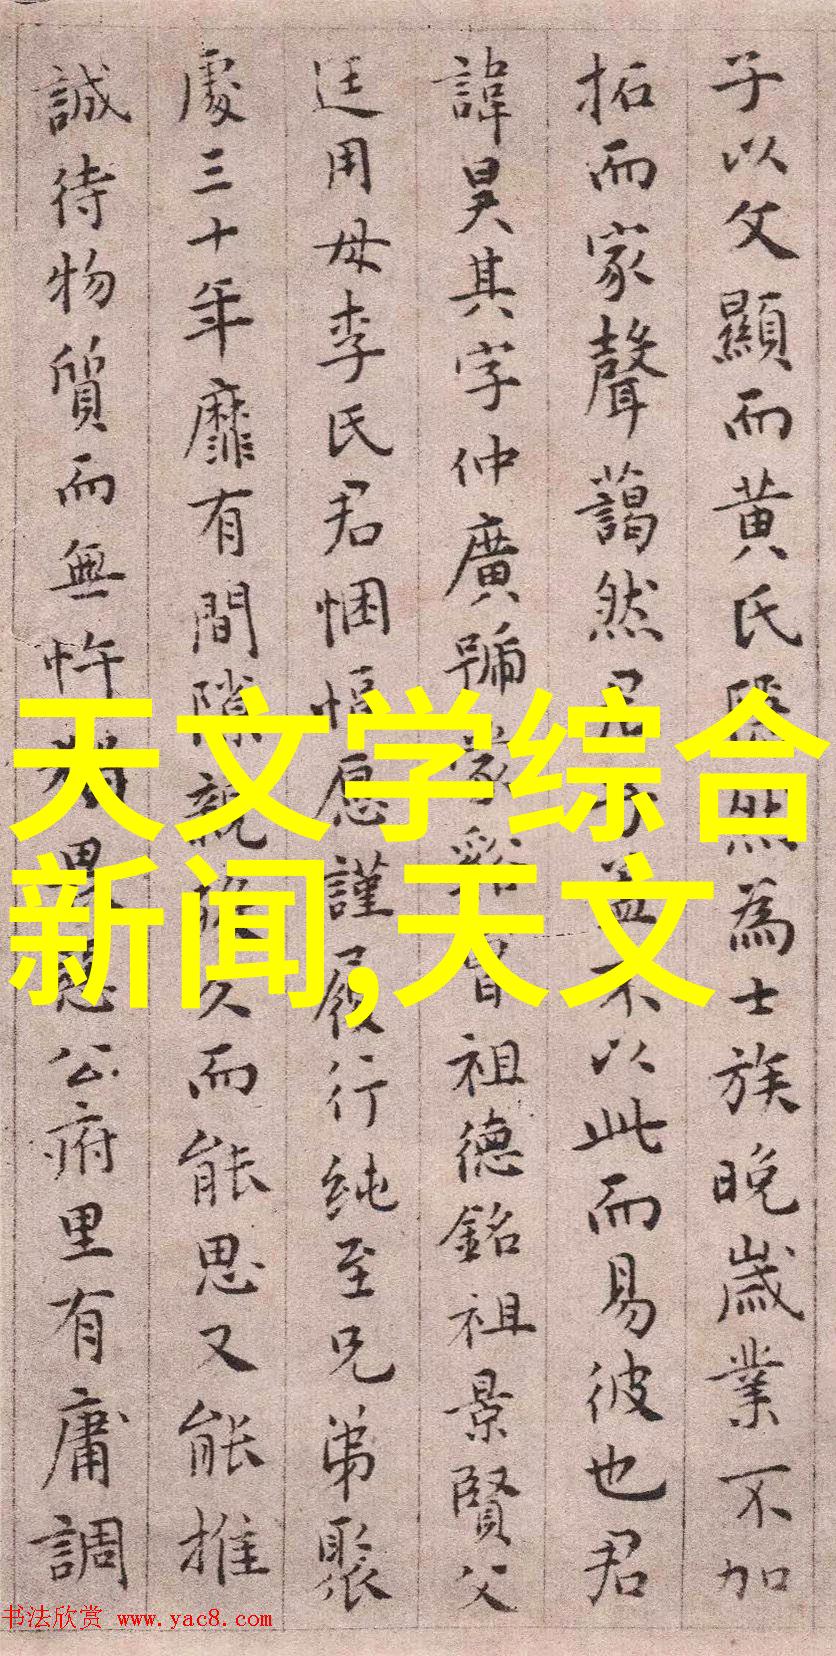 子以父顯而黄氏為士族晚歲業不加
拓而家聲藹然君子蓋不以此而易彼也君
諱昊其字仲廣號祖德銘祖景賢父
廷用母李氏君悃愊愿謹履行純至兄弟聚
處三十年靡有間隙親族久而能思又能推
誠待物質而無忤公府里有庸調
天文学综合
新闻,天文
书法欣赏 www.yac8.com